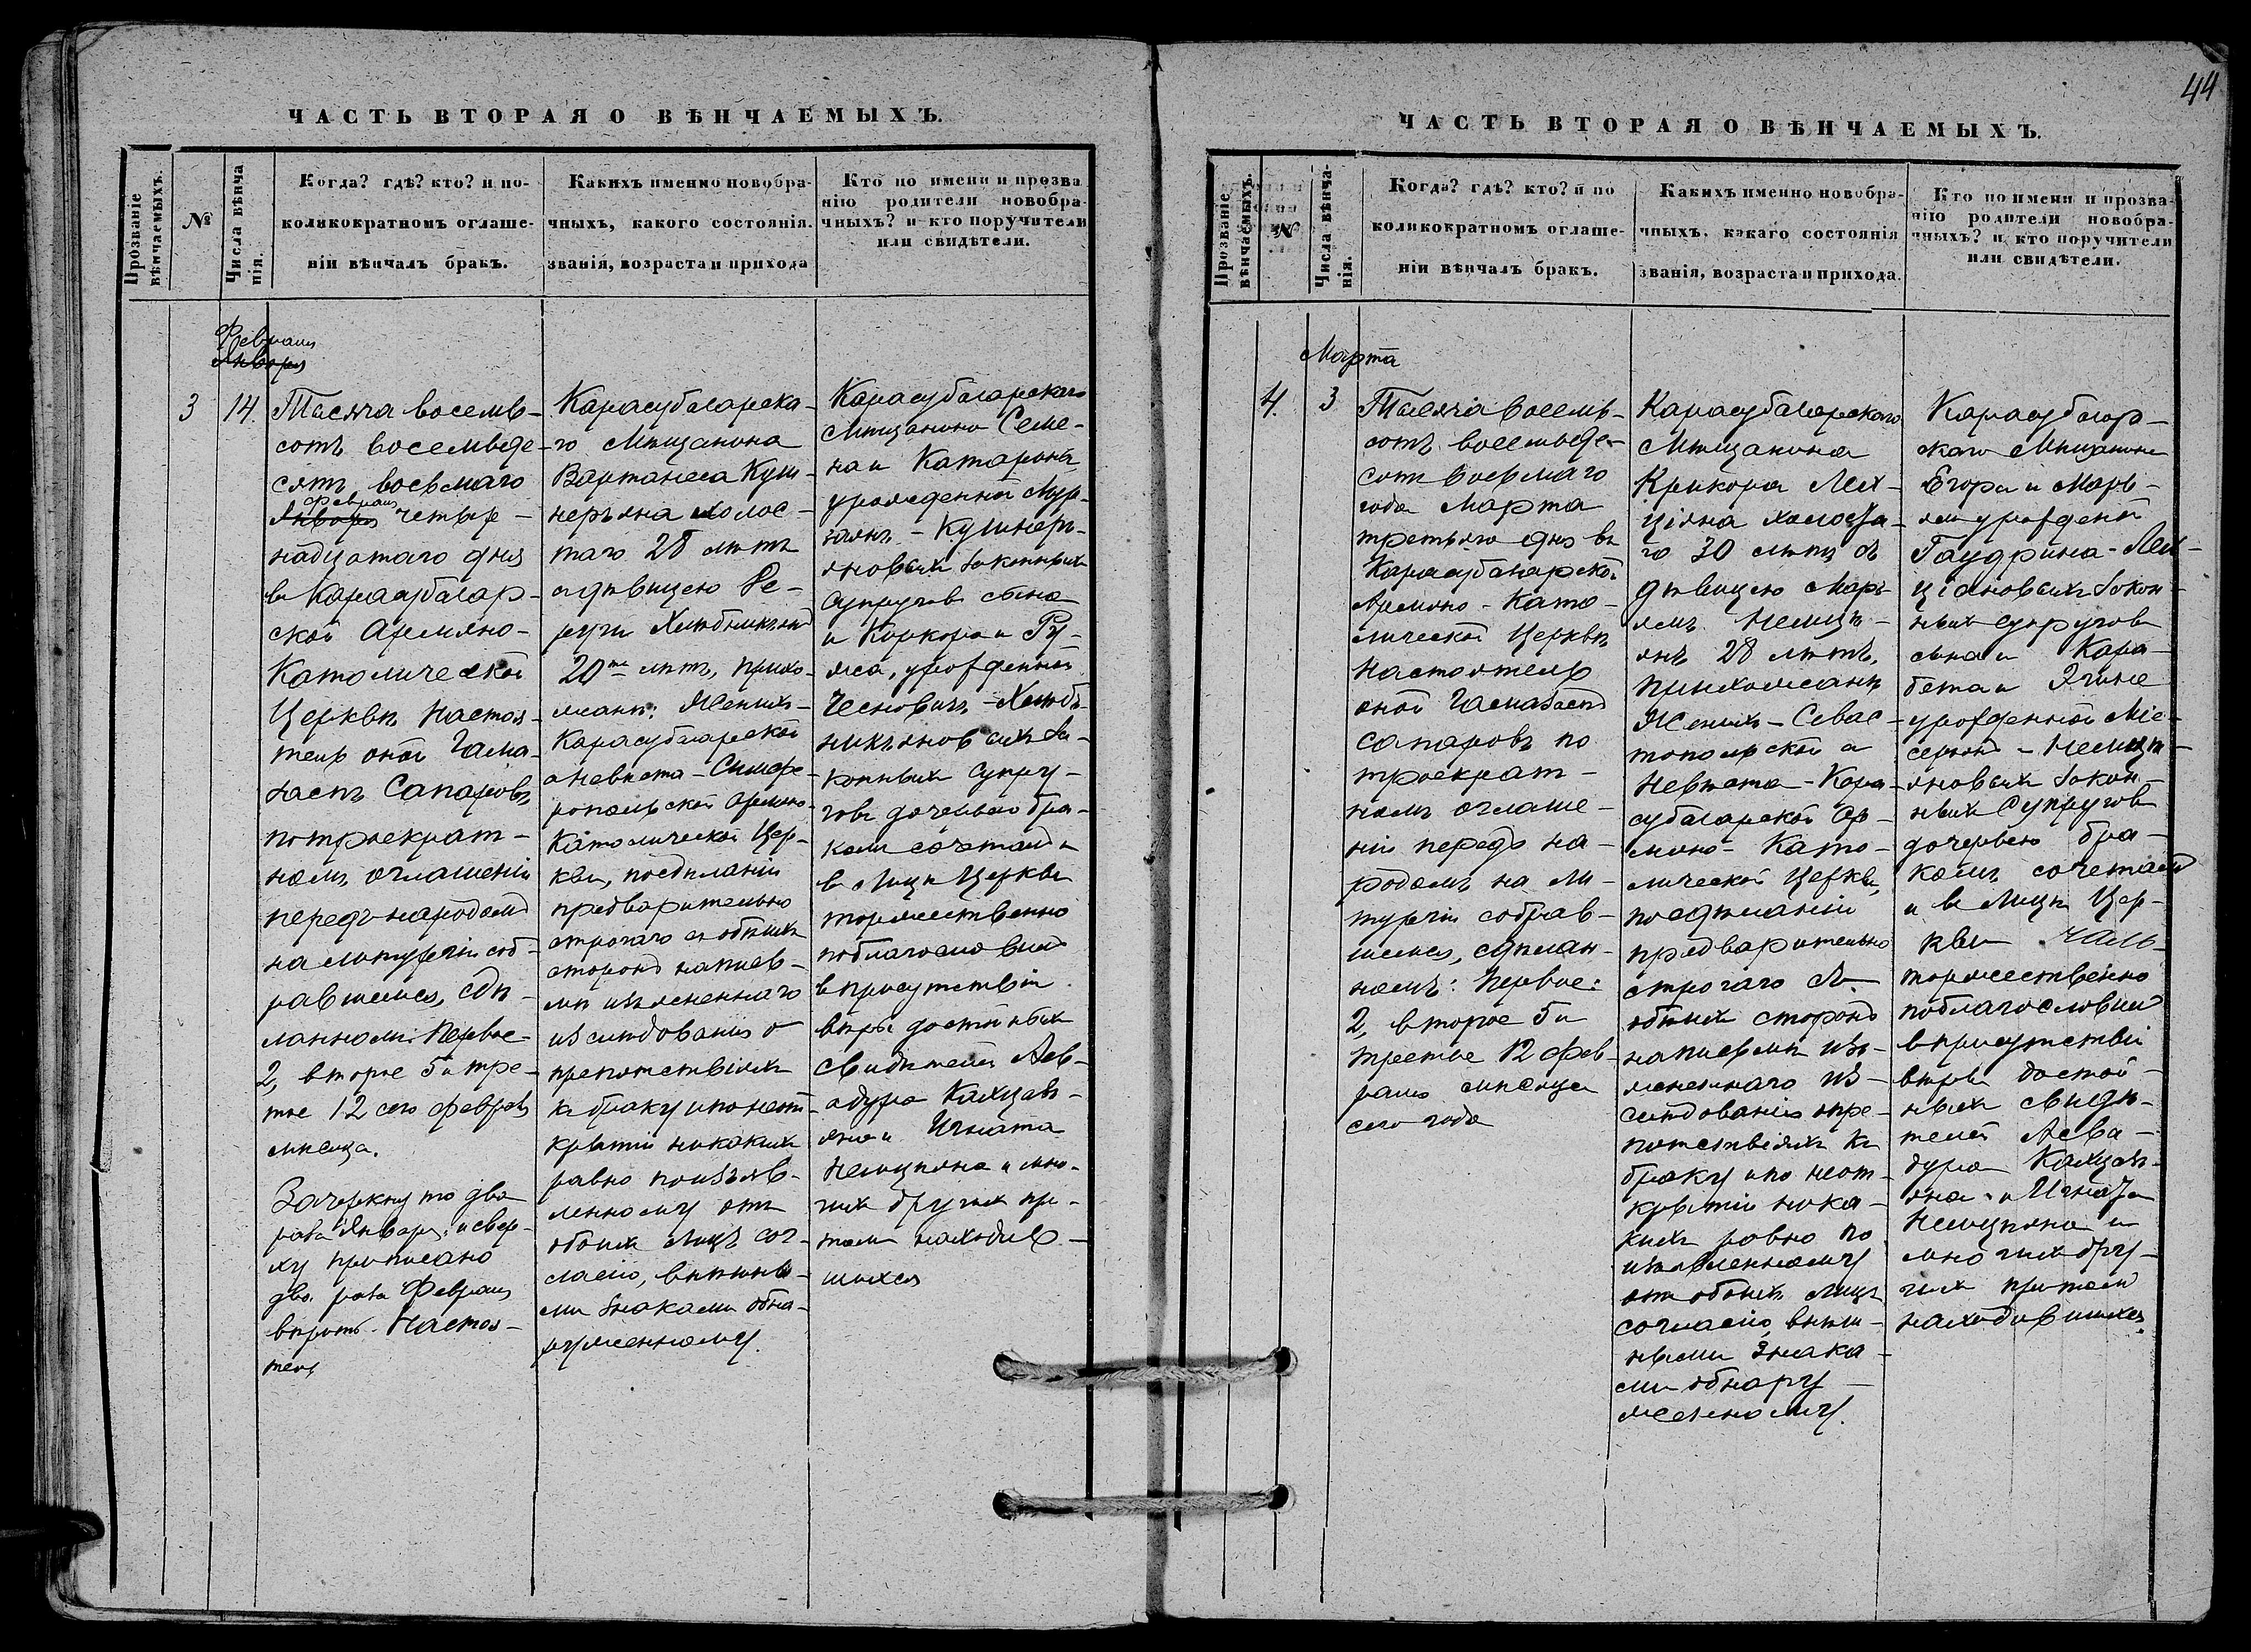 44
ЧАСТЬ ВТОРАЯ О ВѢНЧАЕМЫХЪ.
Прозваніе вѣнчаемыхъ.
№
Числа вѣнча
нія.
Когда? гдѣ? кто? и по-
коликократномъ оглаше-
ніи вѣнчалъ бракъ.
Какихъ именно новобра-
чныхъ, какого состоянія.
званія, возраста и прихода
Кто по имени и прозва
нію родители новобра-
чныхъ? и кто поручители
или свидѣтели.
Февраля
Января
3
14.
Тысяча восемь-
сотъ восемьде-
сятъ восьмаго
Февраля
Января четыр-
надцатаго дня
въ Карасубазар-
ской Армяно-
Католической
Церкви Настоя-
тель оной Гама-
заспъ Сапаровъ
по троекрат-
номъ оглашеніи
передъ народомъ
на литургіи соб-
равшемся, сдѣ-
ланномъ: Первое-
2, второе 5 и тре-
тье 12 сего февраля
мѣсяца.
Зачеркнуто два
раза Января и свер-
ху прописано
два раза Февраля
вѣрно. Настоя-
тель
Карасубазарска-
го Мѣщанина
Вартанеса Куш-
нерьяна холос-
таго 28 лѣтъ
съ дѣвицею Ре-
20 лѣтъ, прихо-
жанъ: Женихъ-
Карасубазарской
а невѣста-Симфе-
ропольской Армяно-
Католической Цер-
кви, по сдѣланіи
предварительно
строгаго съ обѣихъ
сторонъ на письмѣ
изложеннаго
изслѣдованія о
препятствіяхъ
къ браку и по неот-
крытіи никакихъ
равно по изъяв-
ленному отъ
обоихъ лицъ сог-
ласію, внѣшны-
ми знаками обна-
руженному.
Карасубазарскаго
Мѣщанина Семе-
на и Катарины
урожденной Мур-
заянъ-Кушнерь-
яновыхъ законныхъ
супруговъ сына
и Киркора и Ру-
жа, урожденной
законныхъ супру-
говъ дочерью бра-
комъ сочеталъ и
въ Лицѣ Церкви
торжественно
поблагословилъ
въ присутствіи
вѣры достойныхъ
свидѣтелей Асва-
дура Калцавь-
яна и Игната
Немцьяна и мно-
гихъ другихъ при
томъ находив-
шихся
ЧАСТЬ ВТОРАЯ О ВѢНЧАЕМЫХЪ.
Прозваніе вѣнчаемыхъ.
№
Числа вѣнча-
нія.
Когда? гдѣ? кто? и по
коликократномъ оглаше-
ніи вѣнчалъ бракъ.
Какихъ именно новобра-
чныхъ, какаго состоянія
званія, возраста и прихода.
Кто по имени и прозва-
нію родители новобра-
чныхъ? и кто поручители
или свидѣтели.
Марта
4.
3
Тысяча восемь-
сотъ восемьде-
сятъ восьмаго
года Марта
третьяго дня въ
Карасубазарской
Армяно-Като-
лической Церкви
Настоятель
оной Гамазаспъ
Сапаровъ по
троекрат-
номъ оглаше-
ніи передъ на-
родомъ на ли-
тургіи собрав-
шемся, сдѣлан-
номъ: Первое:
2, второе 5 и
третье 12 фев-
раля мѣсяца
сего года
Карасубазарскаго
Мѣщанина
Крикора Лех-
ціяна холоста-
го 30 лѣтъ съ
дѣвицею Марь-
ямъ Немцъ-
янъ 28 лѣтъ,
прихожанъ
Женихъ-Севас-
топольской а
Невѣста-Кара-
субазарской Ар-
мяно-Като-
лической Церкви,
по сдѣланіи
предварительно
строгаго съ
обѣихъ сторонъ
на письмѣ изъ-
ложеннаго из-
слѣдованія о пре-
пятствіяхъ къ
браку и по неот-
крытіи ника-
кихъ равно по
изъявленному
отъ обоихъ лицъ
согласію, внѣш-
ными знака-
ми обнару-
женному.
Карасубазар-
скаго Мѣщанина
Егора и Марь-
ямъ урожденой
Гаудрина-Лех-
ціяновыхъ закон-
ныхъ супруговъ
сына и Кара-
бета и Эгине
урожденной Міс-
серьянъ-Немцъ-
яновыхъ закон-
ныхъ Супруговъ
дочерью бра-
комъ сочеталъ
и въ Лицѣ Цер-
кви
торжественно
поблагословилъ
въ присутствіи
вѣры достой-
ныхъ свидѣ-
телей Асва-
дура Калцавь-
яна и Игната
Немцьяна и
многихъ дру-
гихъ притомъ
находившихся.